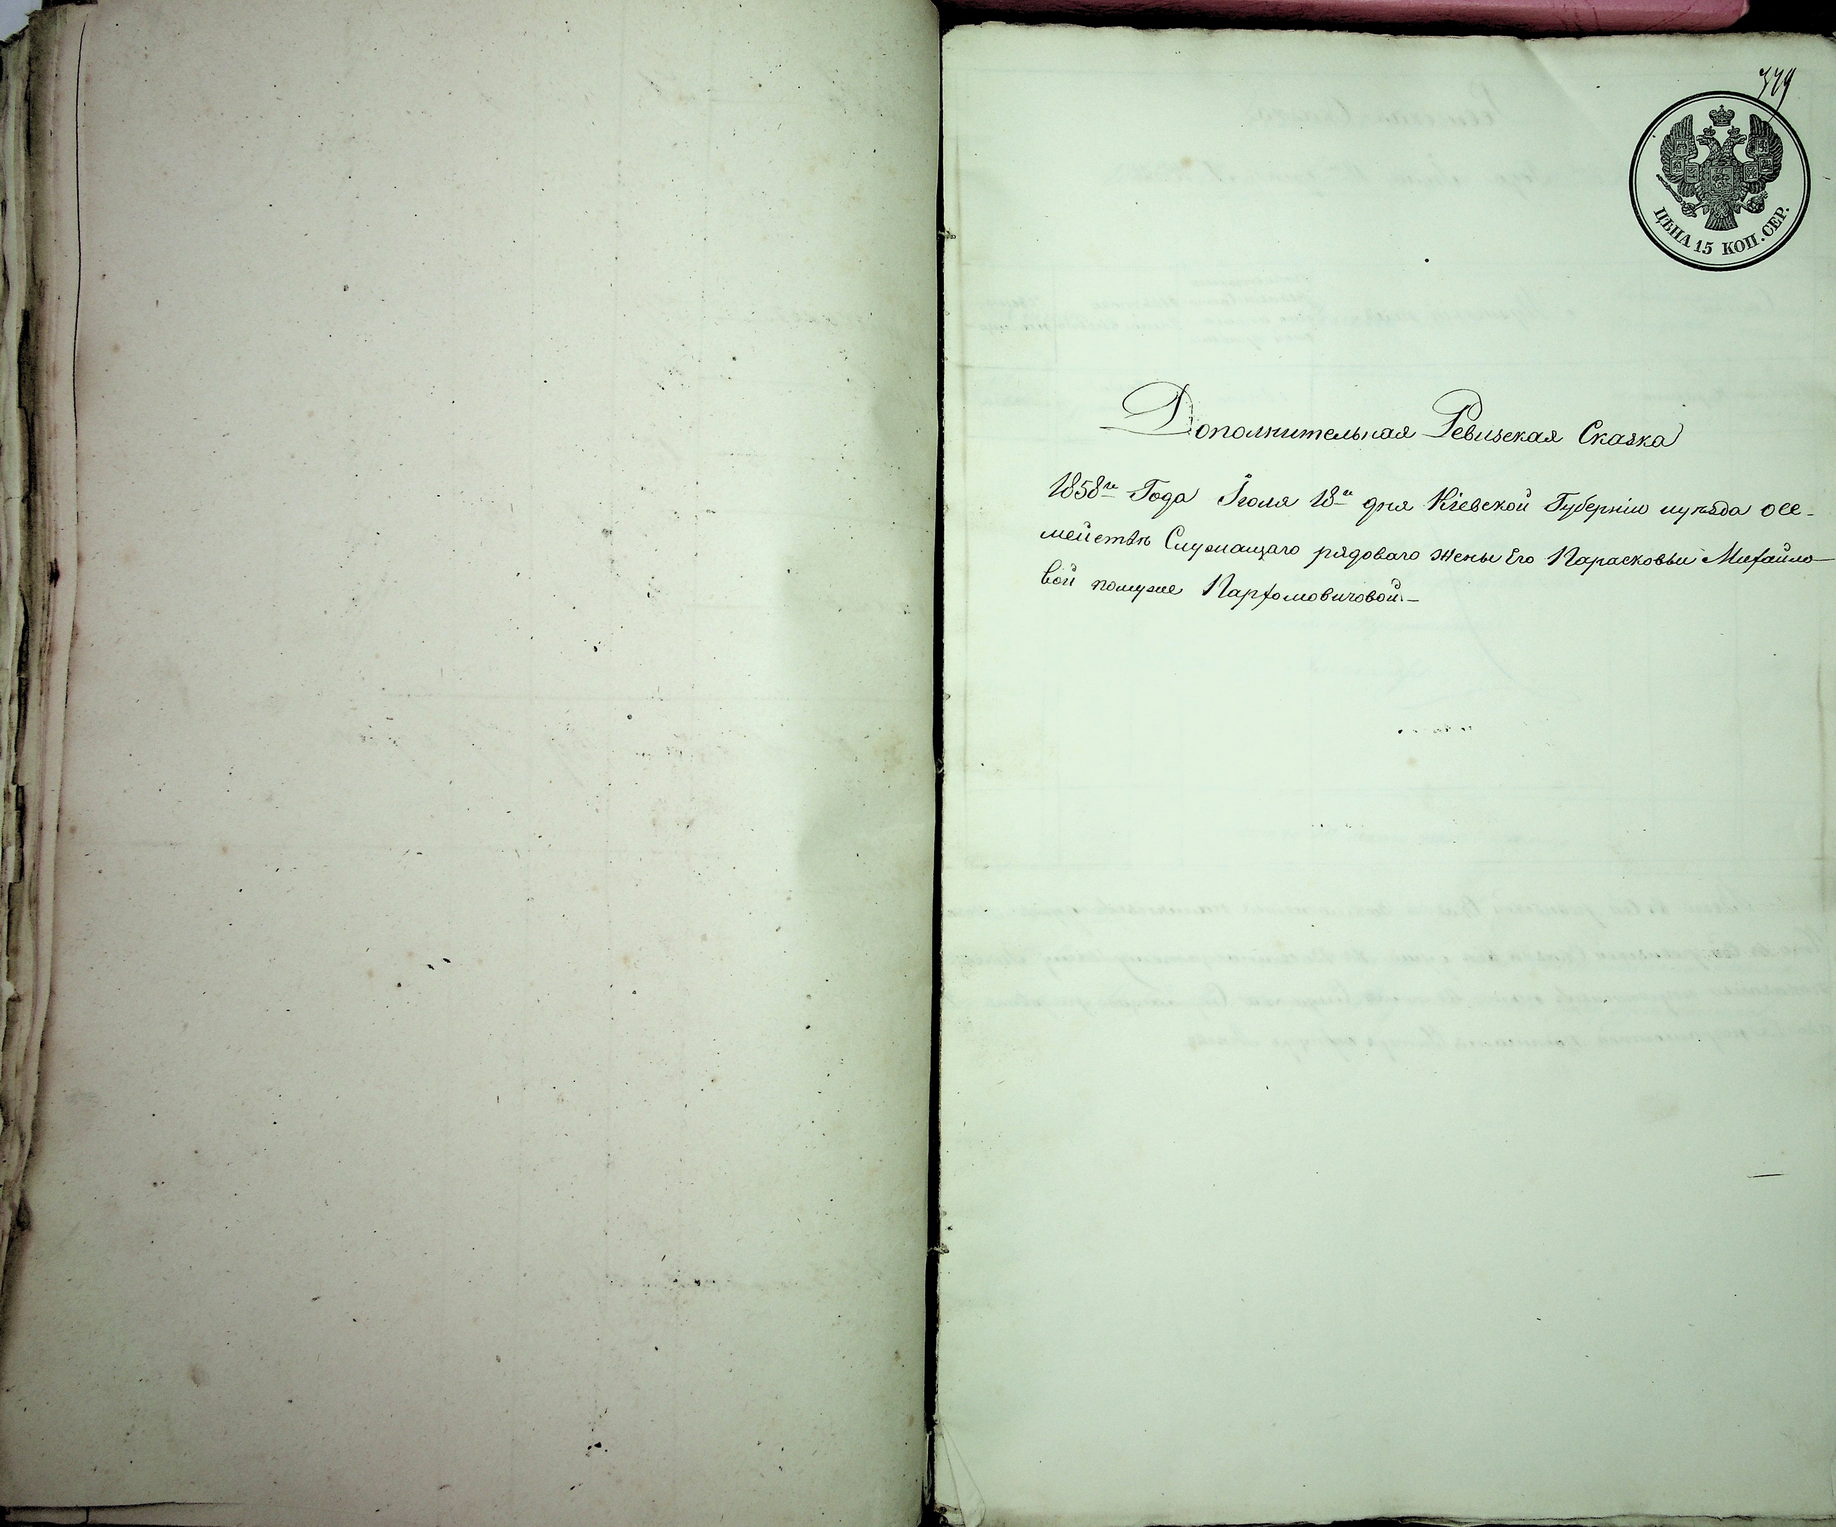 379
ЦѢНА 15 КОП. СЕР.
Дополнительная Ревизская Сказка
1858го Года Іюля 18го дня Кіевской Губерніи и уѣзда о се-
мействѣ Служащаго рядоваго жены Его Парасковьи Михайло-
вой помуже Парфомовичовой.—